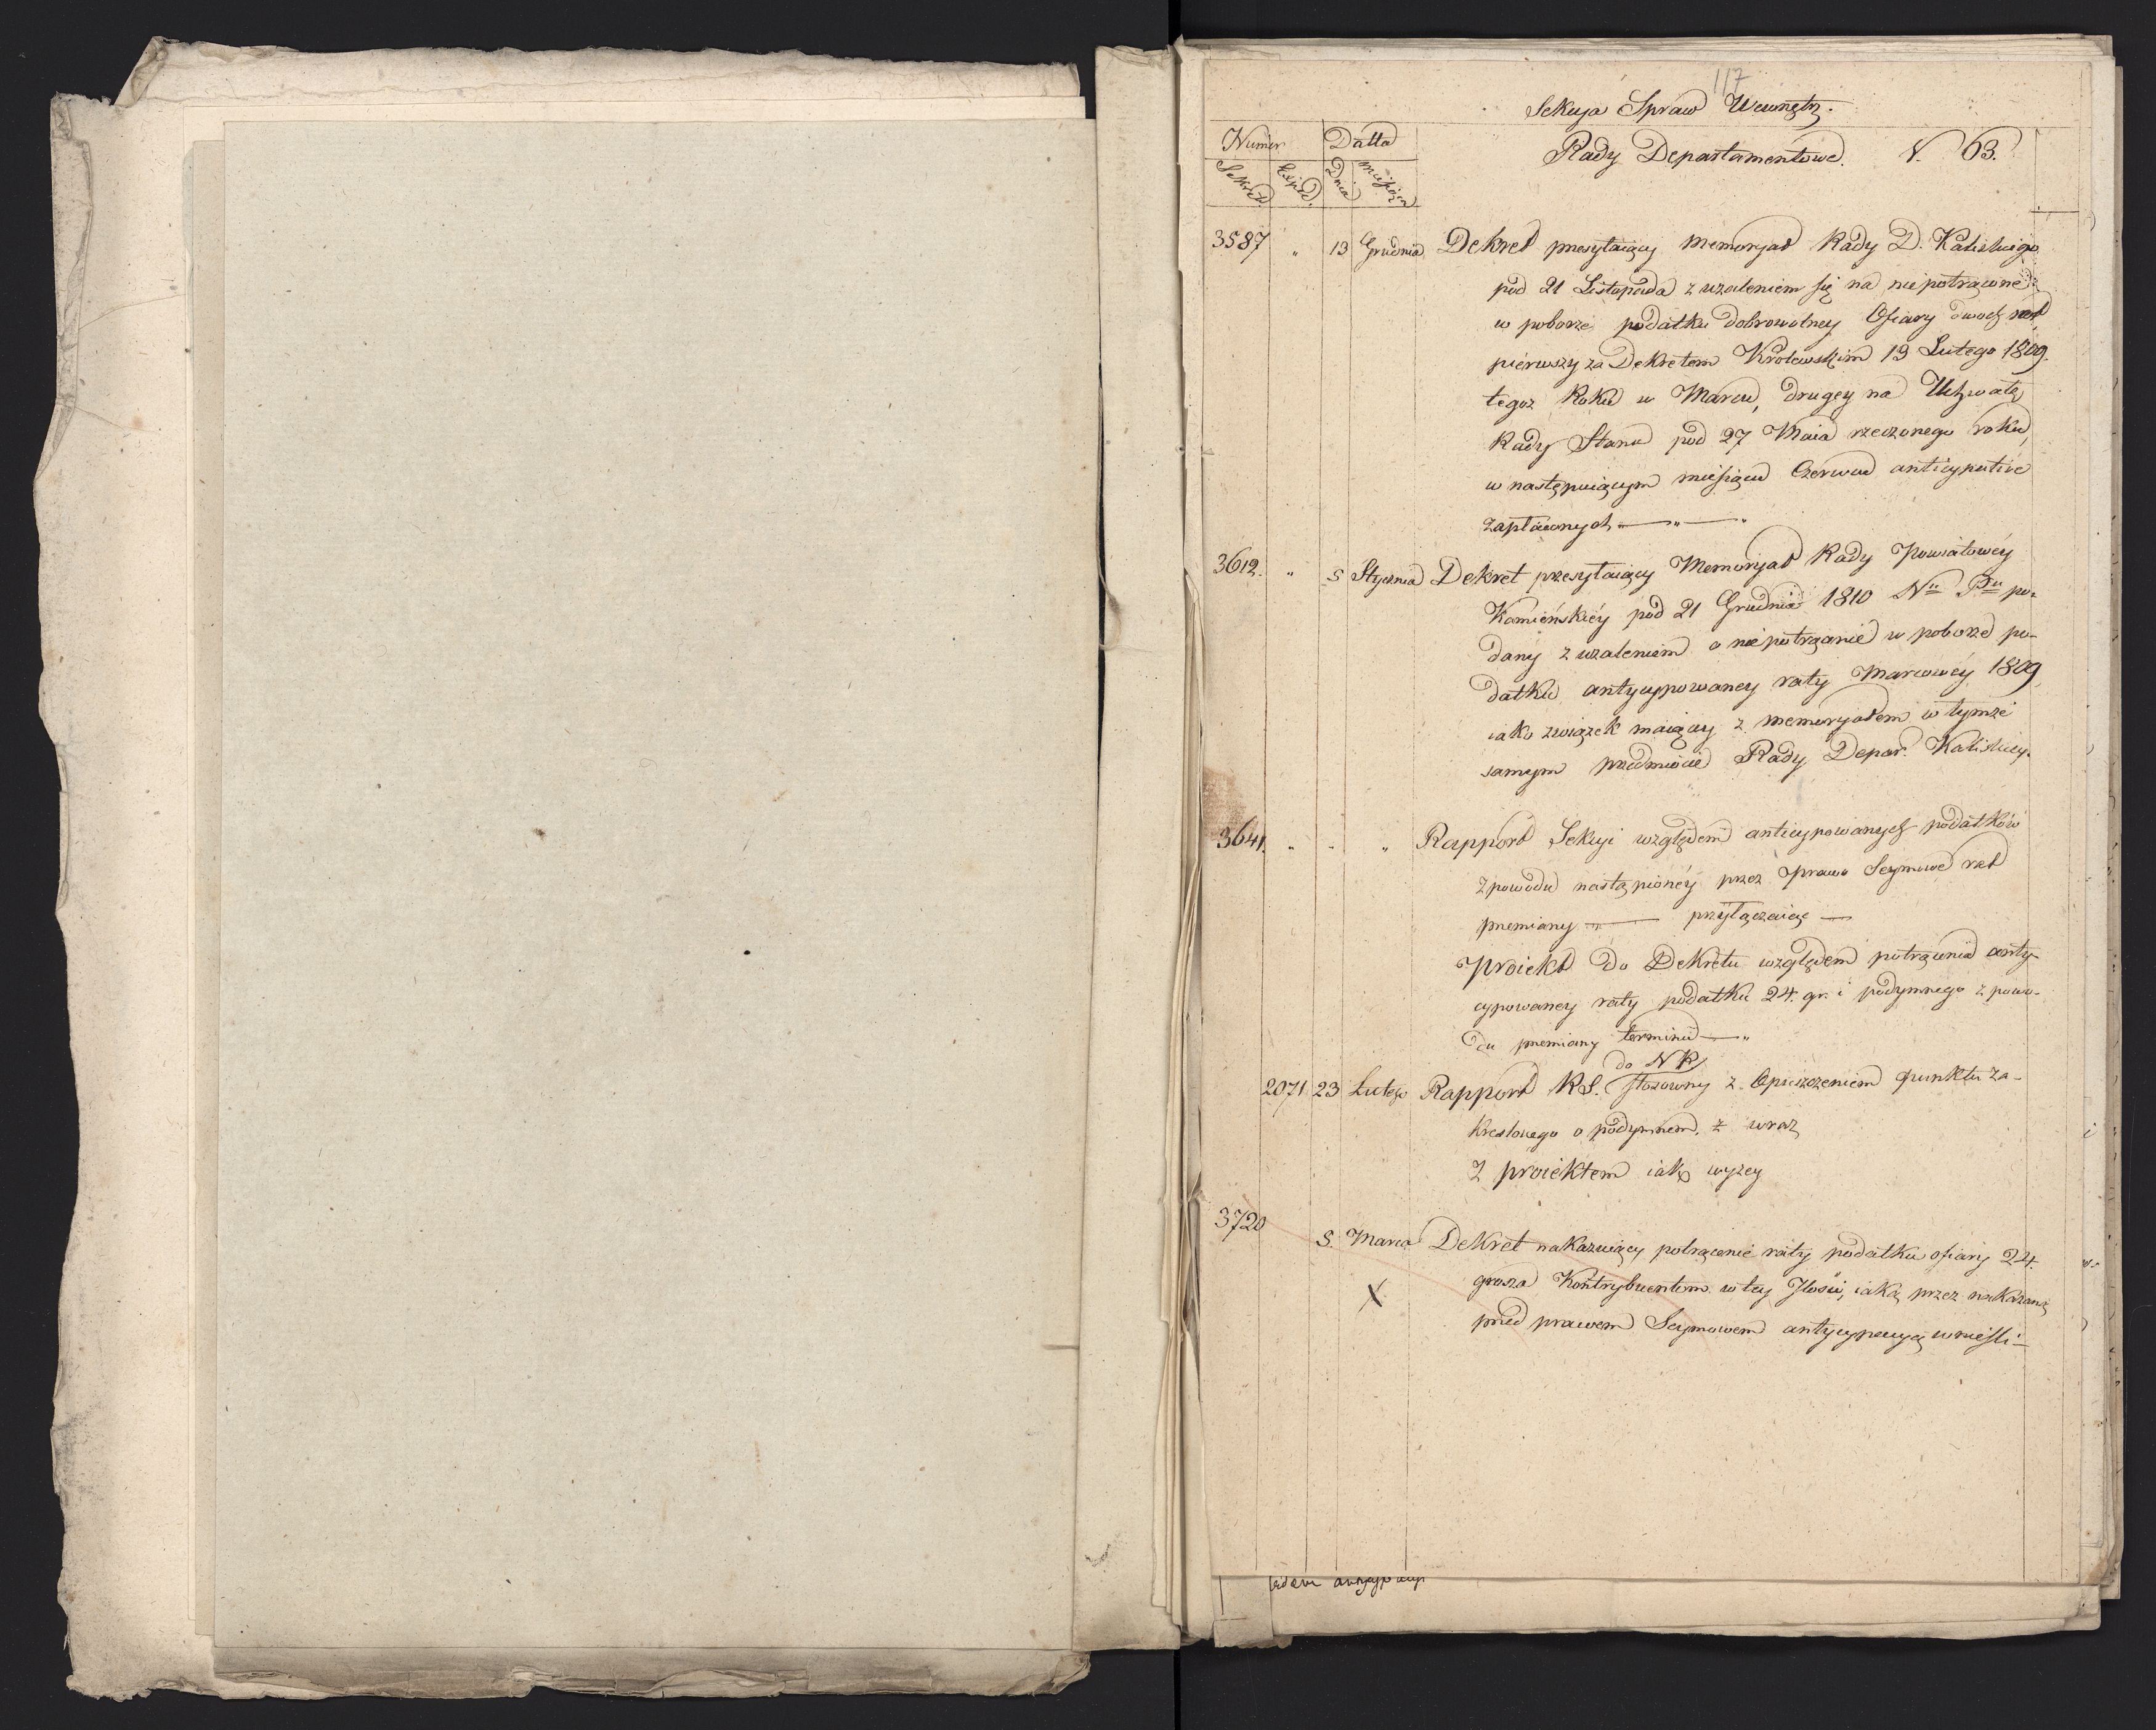 117
Sekcya Spraw Wewnętrz.
Numer Datta Rady Departamentowe. N. 63.
Sekret. Exped. Dnia miesiąca
3587 " 13 Grudnia Dekret przesyłaiący memoryał Rady D. Kaliskiego
pod 21 Listopada z uzaleniem się na niepotrącone
w poborze podatku dobrowolney Ofiary dwoch rat
piérwszy za Dekretem Krolewskim 13 Lutego 1809.
tegoz Roku w Marcu, drugey na Uchwałę
Rady Stanu pod 27 Maia rzeczonego roku,
w następuiącym miesiącu Czerwcu anticypative
zapłaconych — " —"
3612. " 5 Stycznia Dekret przesyłaiący Memoryał Rady Powiatowéy
Kamiéńskiéy pod 21 Grudnia 1810 po-
dany z uzaleniem o niepotrącanie w poborze po-
datku antycypowaney raty Marcowéy 1809
iako związek maiący z memoryałem w tymze
samym przedmiocie Rady Depar. Kaliskiey.
3641. " " " Rapport Sekcyi względem anticypowanych podatków
z powodu nastąpionéy przez prawo Seymowe rat
przemiany — " — przyłączaiąc —
Proiekt do Dekretu względem potrącenia anty-
cypowaney raty podatku 24. gr. i podymnego z powo-
du przemiany terminu — "
do NK
2071 23 Lutego Rapport RS. stosowny z Opuszczeniem punktu za-
kreslonego o podymnem. z wraz
z proiektem iak wyzey
3720
5. Marca Dekret nakazuiący potrącenie raty podatku ofiary 24.
X grosza Kontrybuentom w tey Ilosci, iaką przez nakazaną
przed prawem Seymowem antycypacyą wniesli –
antycypacyi